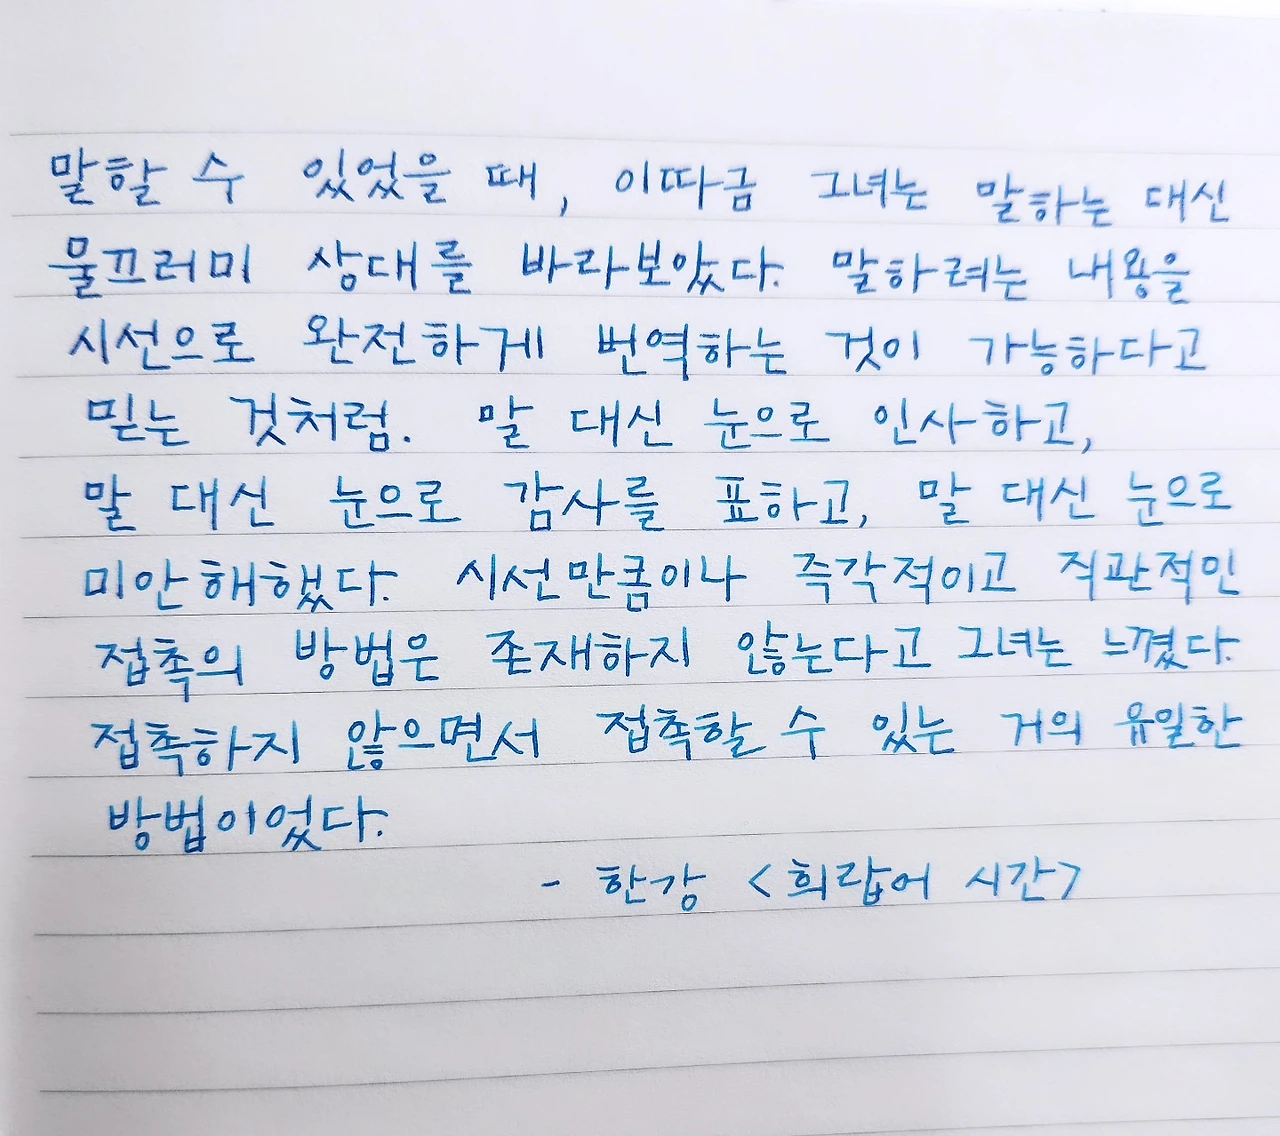 말할 수 있었을 때, 이따금 그녀는 말하는 대신
물끄러미 상대를 바라보았다. 말하려는 내용을
시선으로 완전하게 번역하는 것이 가능하다고
믿는 것처럼. 말 대신 눈으로 인사하고,
말 대신 눈으로 감사를 표하고, 말 대신 눈으로
미안해했다. 시선만큼이나 즉각적이고 직관적인
접촉의 방법은 존재하지 않는다고 그녀는 느꼈다.
접촉하지 않으면서 접촉할 수 있는 거의 유일한
방법이었다.
- 한강 <희랍어 시간>